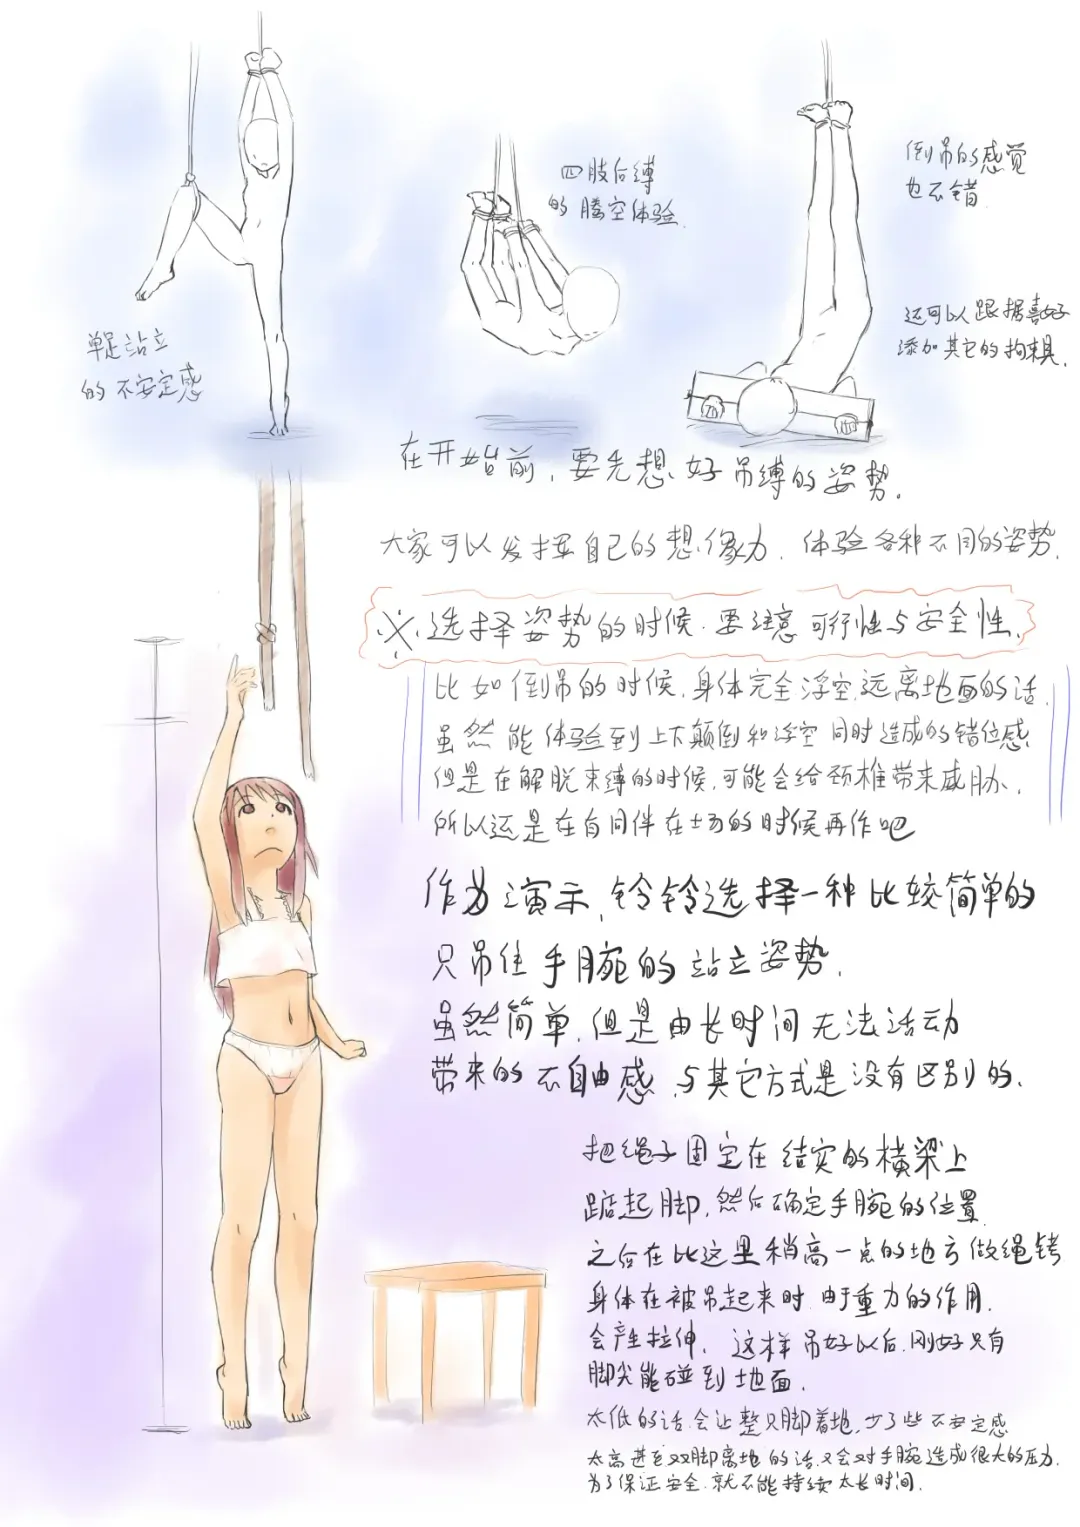 单足站立
的不安定感
四肢后缚
的腾空体验
倒吊的感觉
也不错
还可以跟据喜好
添加其它的拘束具.
在开始前,要先想好吊缚的姿势.
大家可以发挥自己的想像力.体验各种不同的姿势.
※.选择姿势的时候.要注意可行性与安全性.
比如倒吊的时候.身体完全浮空.远离地面的话.
虽然能体验到上下颠倒和浮空同时造成的错位感.
但是在解脱束缚的时候,可能会给颈椎带来威胁.
所以还是在有同伴在场的时候再作吧
作为演示,铃铃选择一种比较简单的
只吊住手腕的站立姿势.
虽然简单.但是由长时间无法活动
带来的不自由感.与其它方式是没有区别的.
把绳子固定在结实的横梁上
踮起脚.然后确定手腕的位置.
之后在比这里稍高一点的地方做绳铐
身体在被吊起来时.由于重力的作用.
会产生拉伸.这样吊好以后.刚好只有
脚尖能碰到地面.
太低的话.会让整只脚着地.少了些不安定感
太高甚至双脚离地的话.又会对手腕造成很大的压力.
为了保证安全.就不能持续太长时间.